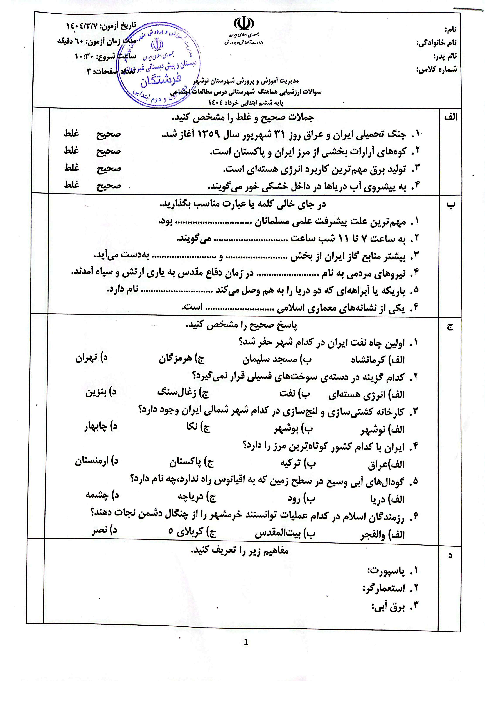 نام:
نام خانوادگی:
نام پدر:
شماره کلاس:
تاریخ آزمون: ۱۴۰۴/۳/۷
مدت زمان آزمون: ۶۰ دقیقه
ساعت شروع: ۱۰:۳۰
تعداد صفحات: ۳
فرشتگان
مدیریت آموزش و پرورش شهرستان نوشهر
سوالات ارزشیابی هماهنگ شهرستانی درس مطالعات اجتماعی
پایه ششم ابتدایی خرداد ۱۴۰۴
الف جملات صحیح و غلط را مشخص کنید.
۱. جنگ تحمیلی ایران و عراق روز ۳۱ شهریور سال ۱۳۵۹ آغاز شد. صحیح غلط
۲. کوه‌های آرارات بخشی از مرز ایران و پاکستان است. صحیح غلط
۳. تولید برق مهم‌ترین کاربرد انرژی هسته‌ای است. صحیح غلط
۴. به پیشروی آب دریاها در داخل خشکی خور می‌گویند. صحیح غلط
ب در جای خالی کلمه یا عبارت مناسب بگذارید.
۱. مهم‌ترین علت پیشرفت علمی مسلمانان ............................ بود.
۲. به ساعت ۷ تا ۱۱ شب ساعت ............................ می‌گویند.
۳. بیشتر منابع گاز ایران از بخش ........................ و ........................ به‌دست می‌آید.
۴. نیروهای مردمی به نام ........................ در زمان دفاع مقدس به یاری ارتش و سپاه آمدند.
۵. باریکه یا آبراهه‌ای که دو دریا را به هم وصل می‌کند ............................ نام دارد.
۶. یکی از نشانه‌های معماری اسلامی ............................ است.
ج پاسخ صحیح را مشخص کنید.
۱. اولین چاه نفت ایران در کدام شهر حفر شد؟
الف) کرمانشاه ب) مسجد سلیمان ج) هرمزگان د) تهران
۲. کدام گزینه در دسته‌ی سوخت‌های فسیلی قرار نمی‌گیرد؟
الف) انرژی هسته‌ای ب) نفت ج) زغال‌سنگ د) بنزین
۳. کارخانه کشتی‌سازی و لنج‌سازی در کدام شهر شمالی ایران وجود دارد؟
الف) نوشهر ب) بوشهر ج) نکا د) چابهار
۴. ایران با کدام کشور کوتاه‌ترین مرز را دارد؟
الف)عراق ب) ترکیه ج) پاکستان د) ارمنستان
۵. گودال‌های آبی وسیع در سطح زمین که به اقیانوس راه ندارد،چه نام دارد؟
الف) دریا ب) رود ج) دریاچه د) چشمه
۶. رزمندگان اسلام در کدام عملیات توانستند خرمشهر را از چنگال دشمن نجات دهند؟
الف) والفجر ب) بیت‌المقدس ج) کربلای ۵ د) نصر
د مفاهیم زیر را تعریف کنید.
۱. پاسپورت:
۲. استعمارگر:
۳. برق آبی:
1